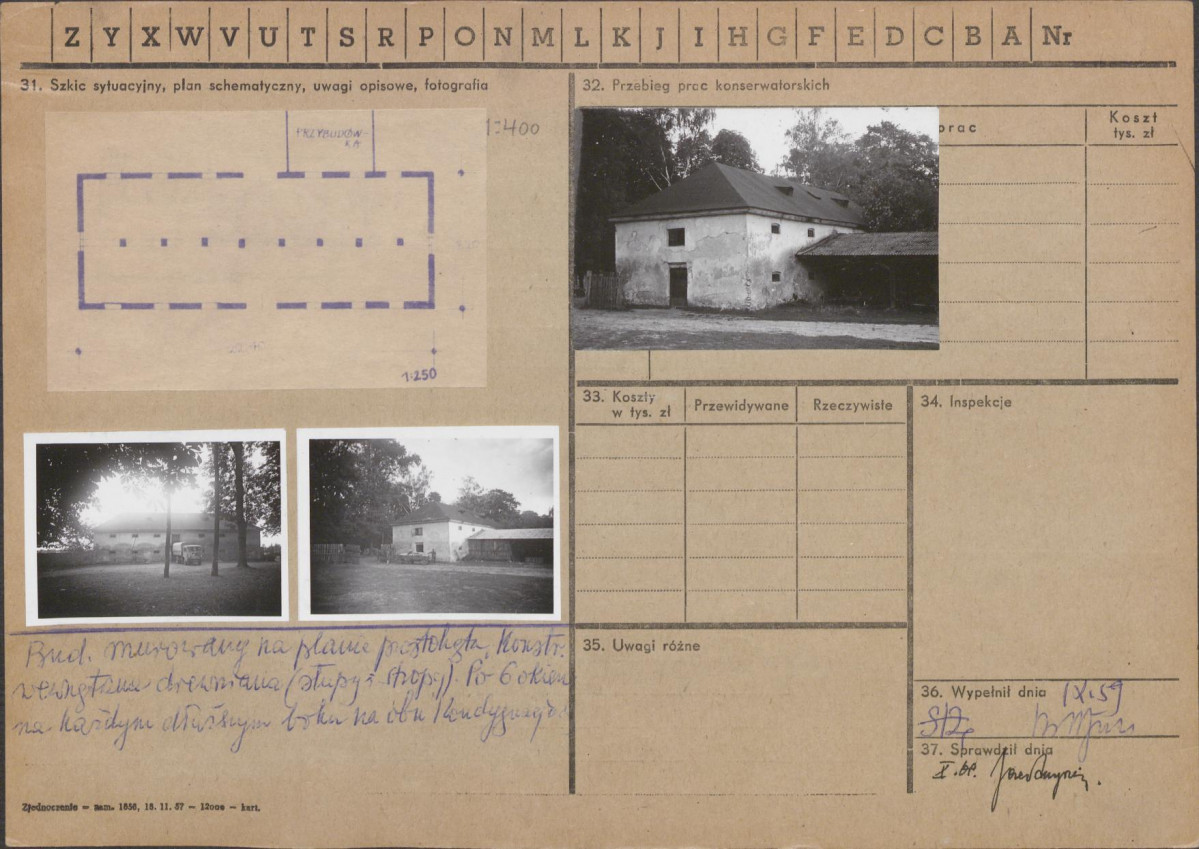 Z Y X W V U T S R P O N M L K J I H G F E D C B A Nr
31. Szkic sytuacyjny, plan schematyczny, uwagi opisowe, fotografia
PRZYBUDÓW-
KA
1:400
1:250
Bud. murowany na planie prostokąta, Konstr.
wewnętrzna drewniana (słupy i stropy). Po 6 okien
na każdym dłuższym boku na obu Kondygnacjach
Zjednoczenie — zam. 1856, 15. 11. 57 — 12000 — kart.
32. Przebieg prac konserwatorskich
prac
Koszt
tys. zł
33. Koszty
w tys. zł
Przewidywane
Rzeczywiste
34. Inspekcje
35. Uwagi różne
36. Wypełnił dnia IX.59
37. Sprawdził dnia